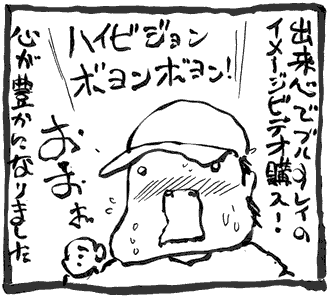 出来心でブルーレイの
イメージビデオ購入!
ハイビジョン
ボヨンボヨン!
おおぉ
心が豊かになりました